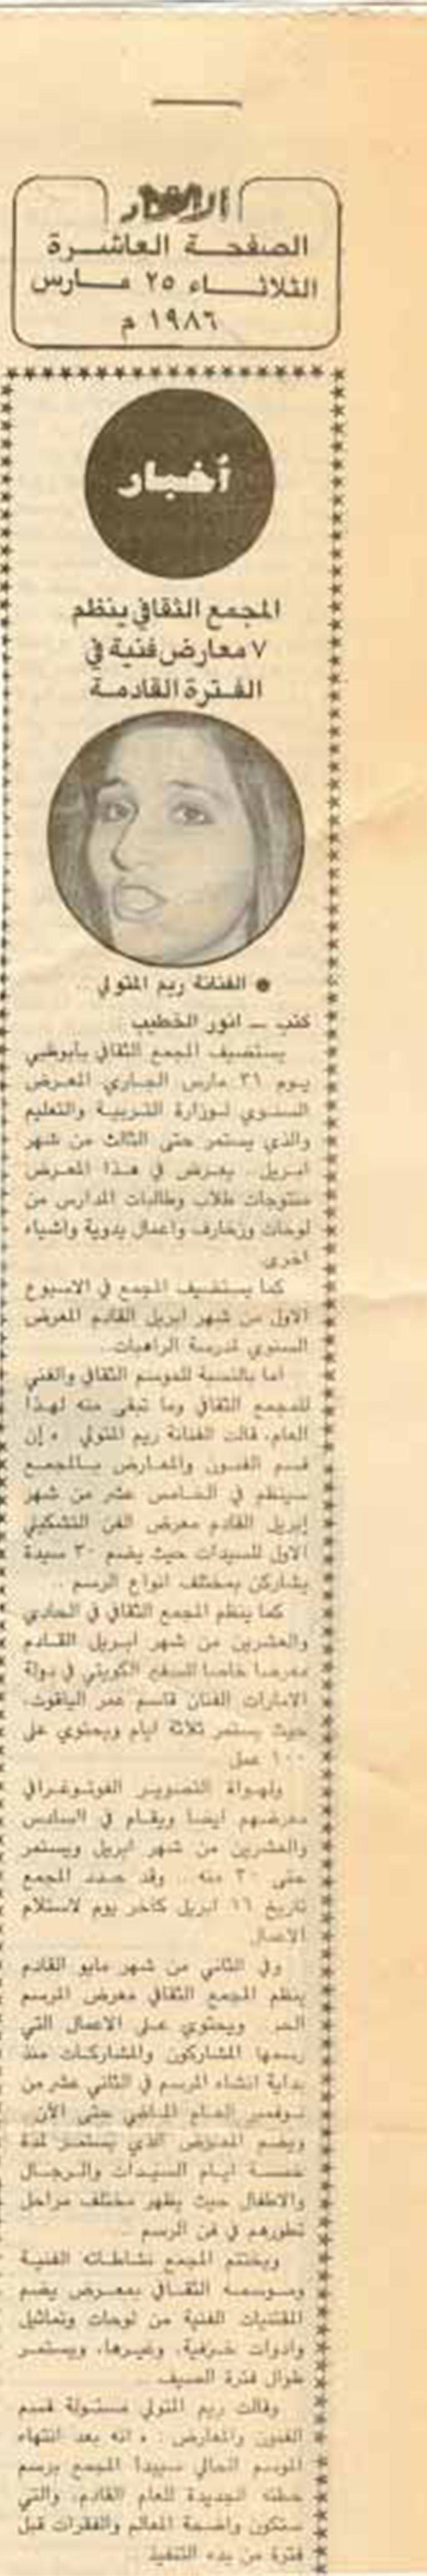 الصفحة العاشرة
الثلاثاء ٢٥ مارس
١٩٨٦ م
أخبار
المجمع الثقافي ينظم
٧ معارض فنية في
الفترة القادمة
● الفنانة ريم المتولي
كتب ــ انور الخطيب
يستضيف المجمع الثقافي بأبوظبي
يوم ٣١ مارس الجاري المعرض
السنوي لوزارة التربية والتعليم
والذي يستمر حتى الثالث من شهر
ابريل .. يعرض في هذا المعرض
منتوجات طلاب وطالبات المدارس من
لوحات وزخارف واعمال يدوية واشياء
اخرى.
كما يستضيف المجمع في الاسبوع
الاول من شهر ابريل القادم المعرض
السنوي لمدرسة الراهبات.
اما بالنسبة للموسم الثقافي والفني
للمجمع الثقافي وما تبقى منه لهذا
العام، قالت الفنانة ريم المتولي « إن
قسم الفنون والمعارض بالمجمع
سينظم في الخامس عشر من شهر
إبريل القادم معرض الفن التشكيلي
الاول للسيدات حيث يضم ٣٠ سيدة
يشاركن بمختلف انواع الرسم ..
كما ينظم المجمع الثقافي في الحادي
والعشرين من شهر ابريل القادم
معرضا خاصا للسفير الكويتي في دولة
الامارات الفنان قاسم عمر الياقوت،
حيث يستمر ثلاثة ايام ويحتوي على
١٠٠ عمل
ولهواة التصوير الفوتوغرافي
معرضهم ايضا ويقام في السادس
والعشرين من شهر ابريل ويستمر
حتى ٣٠ منه .. وقد حدد المجمع
تاريخ ١٦ ابريل كآخر يوم لاستلام
الاعمال
وفي الثاني من شهر مايو القادم
ينظم المجمع الثقافي معرض المرسم
ويحتوي على الاعمال التي
رسمها المشاركون والمشاركات منذ
بداية انشاء المرسم في الثاني عشر من
نوفمبر العام الماضي حتى الآن ..
ويضم المعرض الذي يستمر لمدة
خمسة ايام السيدات والرجال
والاطفال حيث يظهر مختلف مراحل
تطورهم في فن الرسم ..
ويختتم المجمع نشاطاته الفنية
وموسمه الثقافي بمعرض يضم
المقتنيات الفنية من لوحات وتماثيل
وادوات خزفية، وغيرها، ويستمر
طوال فترة الصيف ..
وقالت ريم المتولي مسئولة قسم
الفنون والمعارض : « انه بعد انتهاء
الموسم الحالي سيبدأ المجمع برسم
خطته الجديدة للعام القادم، والتي
ستكون واضحة المعالم والفقرات قبل
فترة من بدء التنفيذ